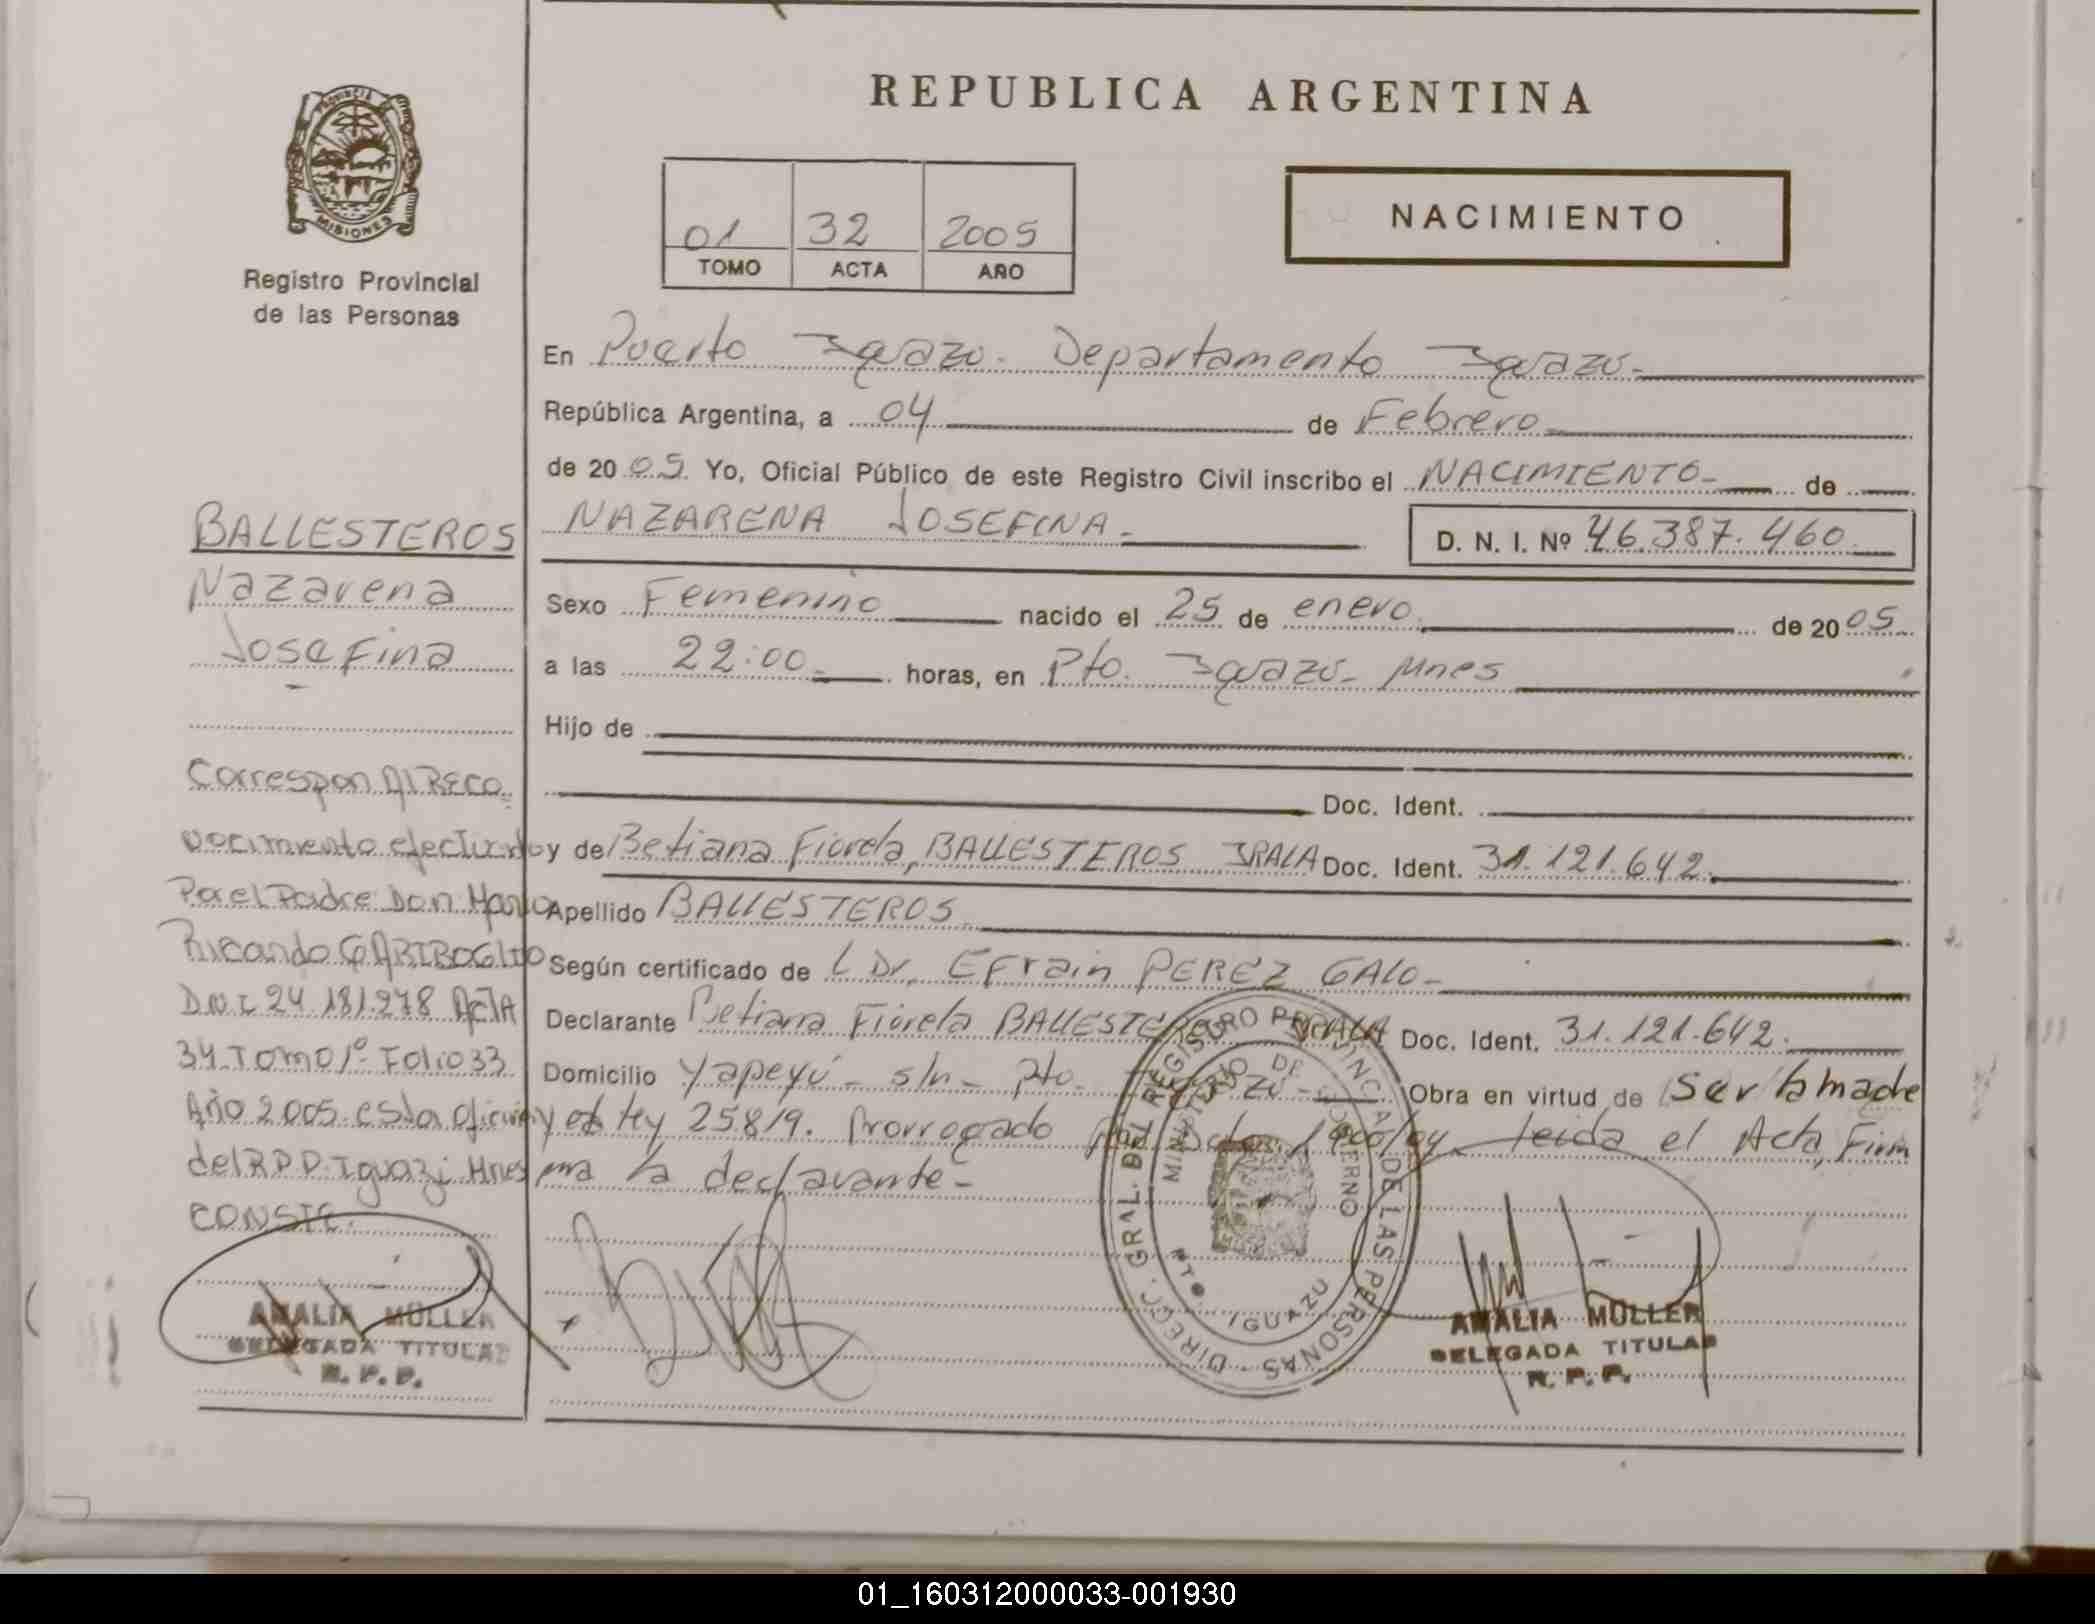 REPUBLICA ARGENTINA
PROVINCIA
MISIONES
Registro Provincial
de las Personas
01 32 2005
TOMO ACTA AÑO
NACIMIENTO
En Puerto Iguazú. Departamento Iguazú.
República Argentina, a 04 de Febrero
de 2005. Yo, Oficial Público de este Registro Civil inscribo el NACIMIENTO de
NAZARENA JOSEFINA.
D. N. I. Nº 46.387.460
Sexo Femenino nacido el 25 de enero de 2005
a las 22:00 horas, en Pto. Iguazú- Mnes
Hijo de
Doc. Ident.
y de Betiana Fiorela, BALLESTEROS IRALA Doc. Ident. 31.121.642.
Apellido BALLESTEROS
Según certificado de L Dr. Efrain PEREZ GALO-
Declarante Betiana Fiorela BALLESTEROS IRALA Doc. Ident. 31.121.642.
Domicilio Yapeyú - s/n - Pto. Iguazú Obra en virtud de Ser la madre
y ley 25819. Prorrogado leida el Acta, Firm
ma la declarante-
BALLESTEROS
Nazarena
Josefina
Correspon Al Reco
nocimiento efectuado
Por el Padre Don Mario
Ricardo GARIBOGLIO
D.N.I. 24.181.278 ActA
34 Tomo 1º Folio 33
Año 2005. esta oficina
del R.P.P. Iguazú Mnes
CONSTE.
AMALIA MÜLLER
DELEGADA TITULAR
R. P. P.
DIREC. GRAL. DEL REGISTRO PROVINCIAL DE LAS PERSONAS
MINISTERIO DE GOBIERNO
PTO. IGUAZU
AMALIA MÜLLER
DELEGADA TITULAR
R. P. P.
01_160312000033-001930